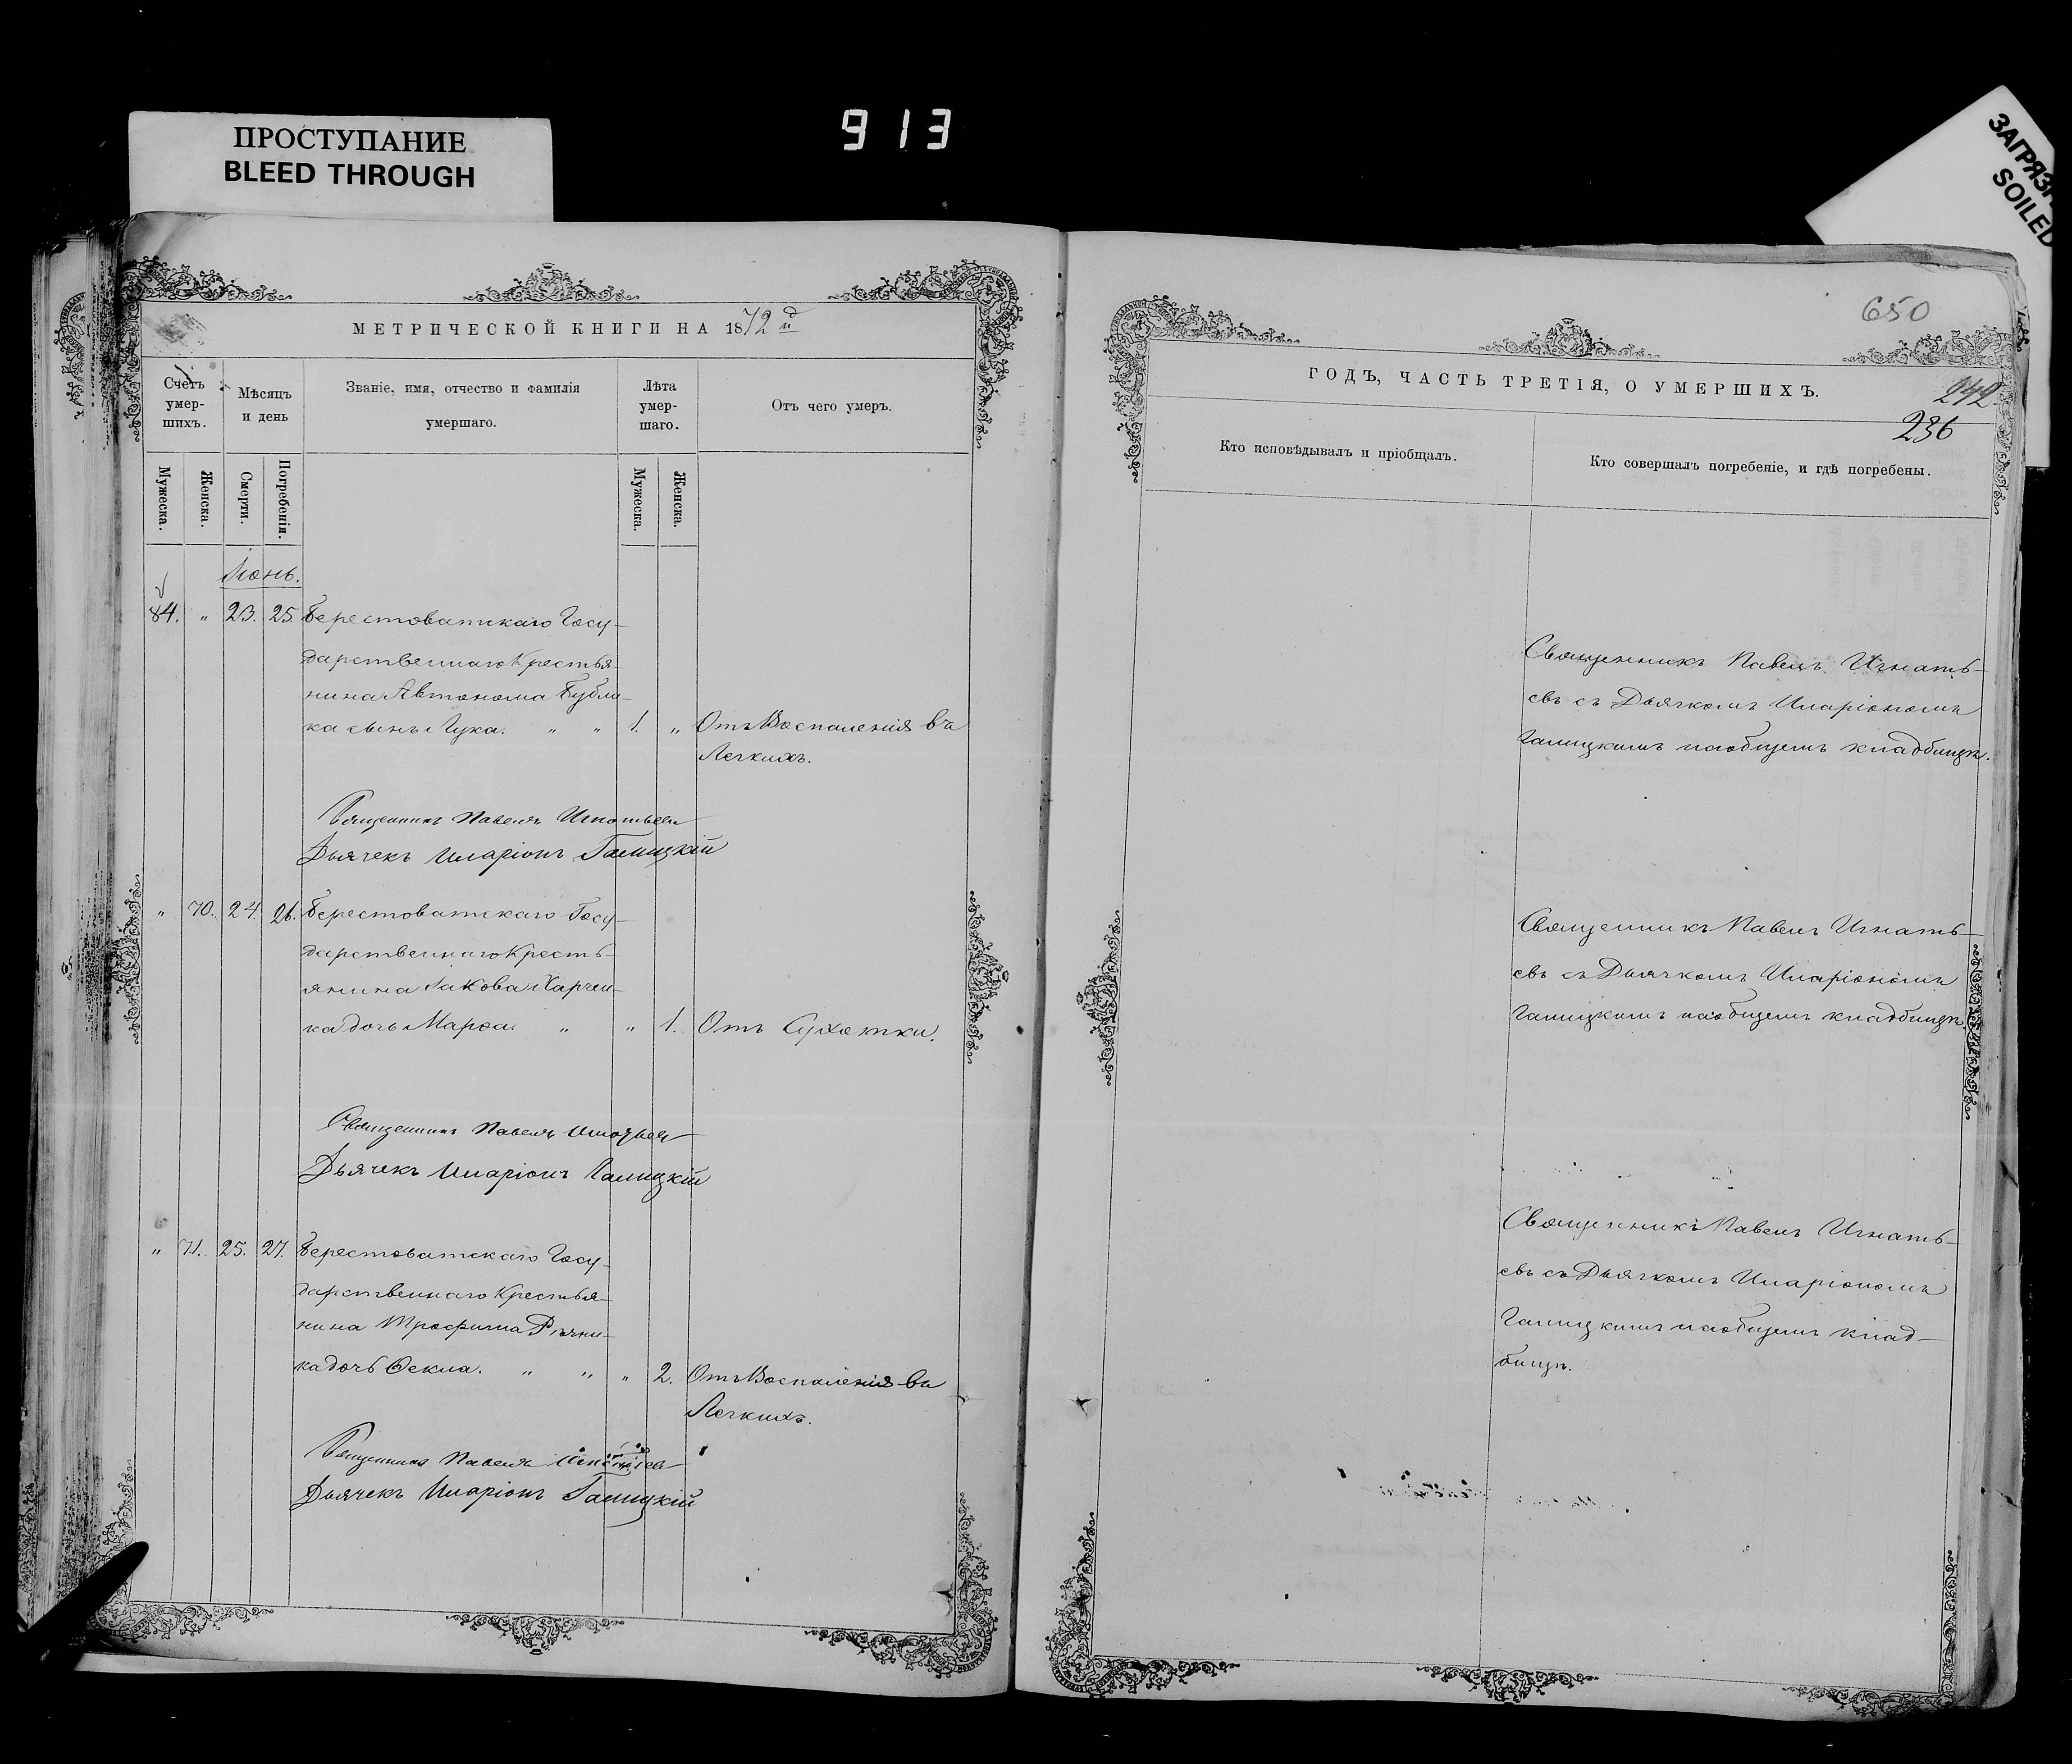 ПРОСТУПАНИЕ
BLEED THROUGH
913
SOILED
МЕТРИЧЕСКОЙ КНИГИ НА 1872й
Счетъ умер-шихъ.
Мѣсяцъ и день
Званіе, имя, отчество и фамилія умершаго.
Лѣта умер-шаго.
Отъ чего умеръ.
Мужеска.
Женска.
Смерти.
Погребенія.
Мужеска.
Женска.
Іюнь.
84. " 23. 25. Берестоватскаго Госу-
дарственнаго Крестья-
нина Автонома Бубли-
ка сынъ Лука. " " 1. " Отъ Воспаленія въ
Легкихъ.
Священникъ Павелъ Игнатьевъ
Дьячекъ Иларіонъ Галицкій
" 70. 24. 26. Берестоватскаго Госу-
дарственнаго Кресть-
янина Іакова Харчен-
ка дочь Марѳа. " " 1. Отъ Сухотки.
Священникъ Павелъ Игнатьевъ
Дьячекъ Иларіонъ Галицкій
" 71. 25. 27. Берестоватскаго Госу-
дарственнаго Крестья-
нина Трофима
ка дочь Ѳекла. " " " 2. Отъ Воспаленія въ
Легкихъ.
Священникъ Павелъ Игнатьевъ
Дьячекъ Иларіонъ Галицкій
650
ГОДЪ, ЧАСТЬ ТРЕТІЯ, О УМЕРШИХЪ.
242
236
Кто исповѣдывалъ и пріобщалъ.
Кто совершалъ погребеніе, и гдѣ погребены.
Священникъ Павелъ Игнать-
евъ съ Дьячкомъ Иларіономъ
Галицкимъ на общемъ кладбищѣ.
Священникъ Павелъ Игнать-
евъ съ Дьячкомъ Иларіономъ
Галицкимъ на общемъ кладбищѣ.
Священникъ Павелъ Игнать-
евъ съ Дьячкомъ Иларіономъ
Галицкимъ на общемъ клад-
бищѣ.